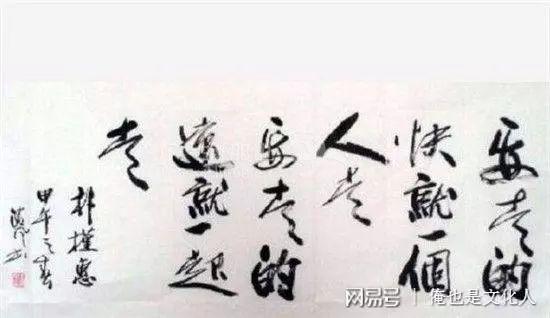 要走的
快就一個
人走
要走的
遠就一起
走
槿惠
甲午之春
网易号 | 俺也是文化人